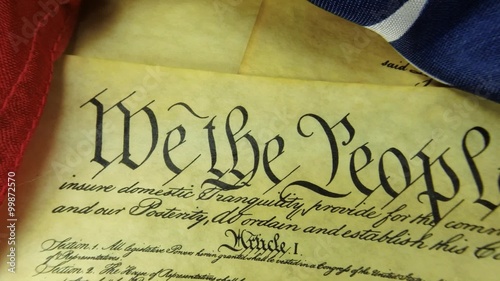 said
We the People
insure domestic Tranquility, provide for the comm
and our Posterity, do ordain and establish this Co
Article I.
Section. 1. All legislative Powers herein granted shall be vested in a Congress of the United States
of Representatives.
Section. 2. The House of Representatives shall
Adobe Stock | #99872570